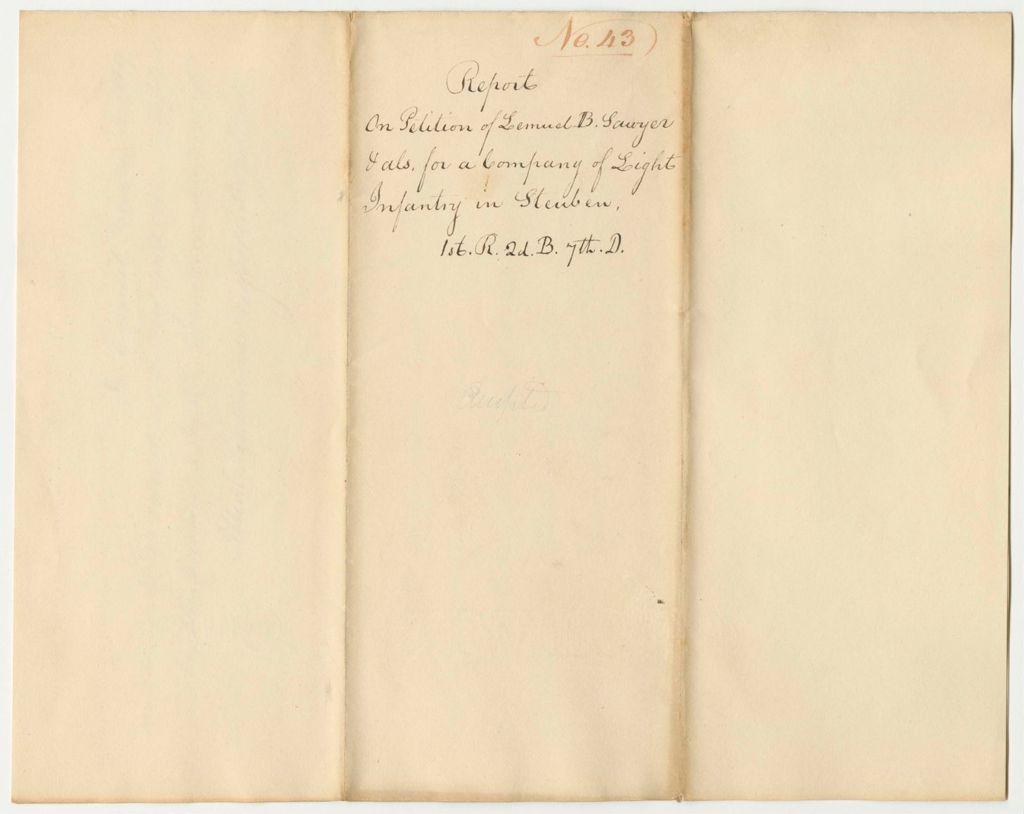 No. 43
Report
On Petition of Lemuel B. Sawyer
& als. for a Company of Light
Infantry in Steuben,
1st. R. 2d. B. 7th. D.
Accepted